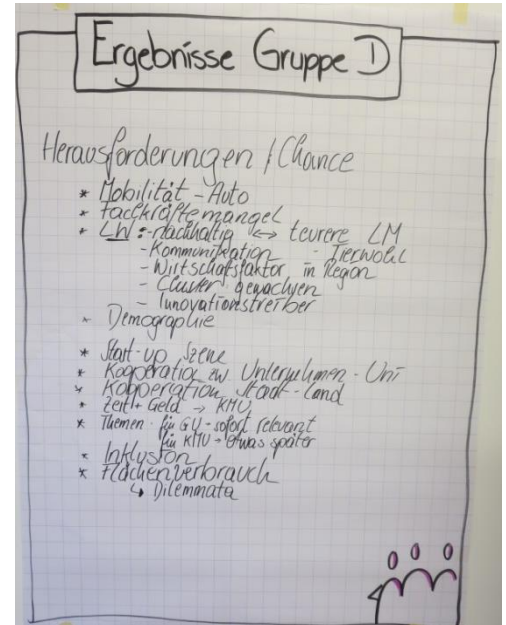 Ergebnisse Gruppe D
Herausforderungen / Chance
* Mobilität - Auto
* Fachkräftemangel
* LW :- nachhaltig <-> teurere LM
- Kommunikation - Tierwohl
- Wirtschaftsfaktor in Region
- Cluster gewachsen
- Innovationstreiber
* Demographie
* Start-up Szene
* Kooperation zw Unternehmen - Uni
* Kooperation Stadt-Land
* Zeit + Geld → KMU
* Themen für GU - sofort relevant
für KMU → etwas später
* Inklusion
* Flächenverbrauch
↳ Dilemmata